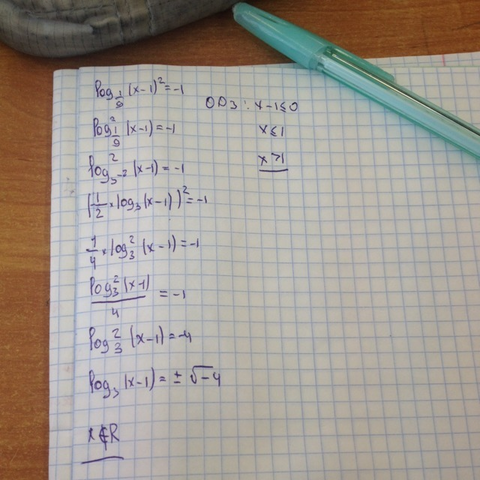 log_{1/9} (x-1)^2 = -1
ОДЗ: x-1≤0
log^2_{1/9} (x-1) = -1
x≤1
log^2_{3^{-2}} (x-1) = -1
x>1
(1/2 * log_3 (x-1))^2 = -1
1/4 * log^2_3 (x-1) = -1
log^2_3 (x-1) / 4 = -1
log^2_3 (x-1) = -4
log_3 (x-1) = ± √-4
x∉R